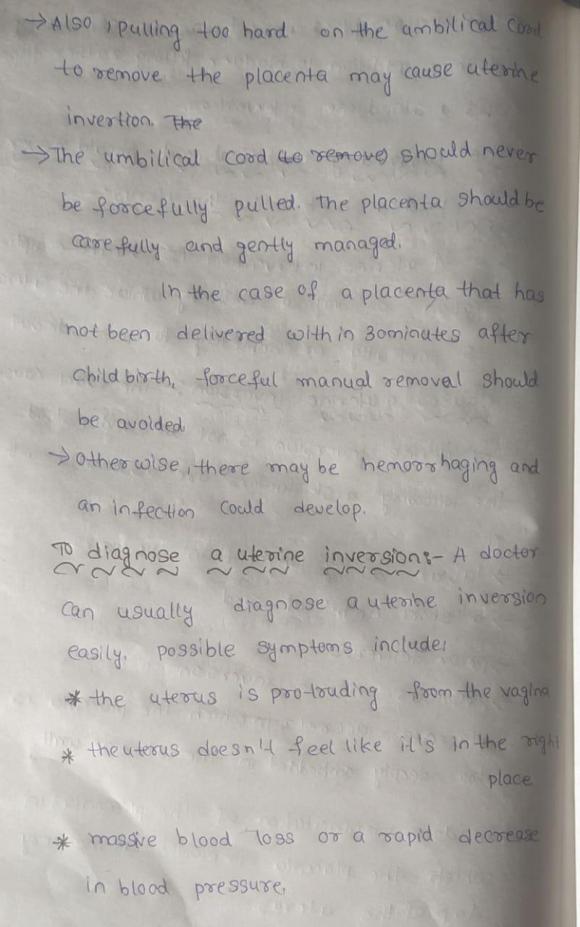 → Also, pulling too hard on the ambilical Cord
to remove the placenta may cause uterine
invertion. The
→ The umbilical cord to remove) should never
be forcefully pulled. the placenta should be
carefully and gently managed.
In the case of a placenta that has
not been delivered with in 30minutes after
child birth, forceful manual removal should
be avoided
→ Otherwise, there may be hemorrhaging and
an infection could develop.
To diagnose a uterine inversion:- A doctor
can usually diagnose a uterine inversion
easily. possible symptoms include:
* the uterus is protruding from the vagina
* the uterus doesn't feel like it's in the right
place
* massive blood loss or a rapid decrease
in blood pressure.